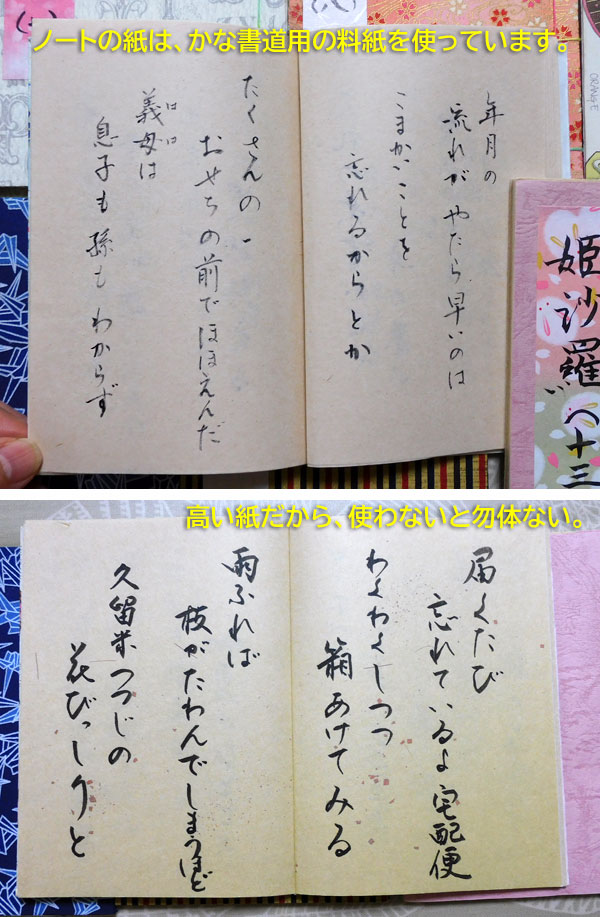 ノートの紙は、かな書道用の料紙を使っています。
年月の
流れが やたら 早いのは
こまかいことを
忘れるからとか
たくさんの
おせちの前でほほえんだ
義母は
はは
息子も孫も わからず
姫沙羅
十三
ORANGE
高い紙だから、使わないと勿体ない。
届くたび
忘れているよ宅配便
わくわくしつつ
箱あけてみる
雨ふれば
枝がたわんでしまうほど
久留米つつじの
花びっしりと